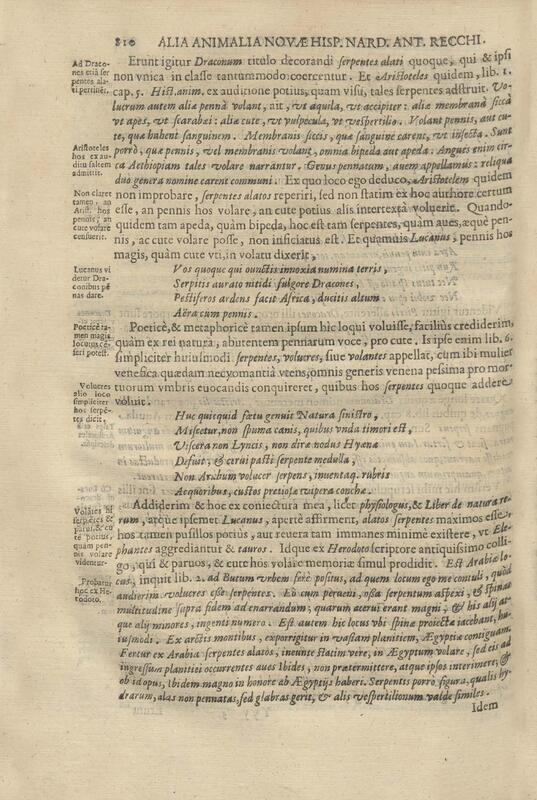 810 ALIA ANIMALIA NOVÆ HISP. NARD. ANT. RECCHI.
Ad Draco-
nes etiã ser
pentes ala-
ti pertinẽt.
Erunt igitur Draconum titulo decorandi serpentes alati quoque, qui & ipsi
non vnica in classe tantummodo coercentur. Et Aristoteles quidem, lib. 1.
cap. 5. Hist. anim. ex auditione potius, quam visu, tales serpentes adstruit. Vo-
lucrum autem aliæ pennâ volant, ait, vt aquila, vt accipiter: aliæ membranâ siccâ
vt apes, vt scarabæi: aliæ cute, vt vulpecula, vt vespertilio. Volant pennis, aut cu-
te, quæ habent sanguinem. Membranis siccis, quæ sanguine carent, vt insecta. Sunt
porrò, quæ pennis, vel membranis volant, omnia bipeda aut apeda. Angues enim cir-
ca Aethiopiam tales volare narrantur. Genus pennatum, auem appellamus: reliqua
duo genera nomine carent communi. Ex quo loco ego deduco, Aristotelem quidem
non improbare, serpentes alatos reperiri, sed non statim ex hoc authore certum
esse, an pennis hos volare, an cute potius alis intertextâ voluerit. Quando-
quidem tam apeda, quàm bipeda, hoc est tam serpentes, quàm aues, æquè pen-
nis, ac cute volare posse, non inficiatus est. Et quamuis Lucanus, pennis hos
magis, quàm cute vti, in volatu dixerit,
Aristoteles
hos ex au-
ditu saltem
admittit.
Non claret
tamen, an
Arist. hos
pennis, an
cute volare
censuerit.
Lucanus vi
detur Dra-
conibus pẽ
nas dare.
Vos quoque qui cunctis innoxia numina terris,
Serpitis aurato nitidi fulgore Dracones,
Pestiferos ardens facit Africa, ducitis altum
Aëra cum pennis.
Poeticè
tamen magis
locutus cẽ-
seri potest.
Poeticè, & metaphoricè tamen ipsum hic loqui voluisse, facilius crediderim,
quàm ex rei natura, abutentem pennarum voce, pro cute. Is ipse enim lib. 6.
simpliciter huiusmodi serpentes, volucres, siue volantes appellat, cum ibi mulier
venefica quædam necyomantiâ vtens, omnis generis venena pessima pro mor-
tuorum vmbris euocandis conquireret, quibus hos serpentes quoque addere
voluit.
Volucres
alio loco
simpliciter
hos serpẽ-
tes dicit.
Huc quicquid fœtu genuit Natura sinistro,
Miscetur, non spuma canis, quibus vnda timori est,
Viscera non Lyncis, non diræ nodus Hyænæ
Defuit; & cerui pasti serpente medulla,
Non Arabum volucer serpens, innataq. rubris
Aequoribus, custos pretiosæ vipera conchæ.
Addiderim & hoc ex coniectura mea, licet physiologus, & Liber de natura re-
rum, atque ipsemet Lucanus, apertè affirment, alatos serpentes maximos esse,
hos tamen pusillos potius, aut reuera tam immanes minimè existere, vt Ele-
phantes aggrediantur & tauros. Idque ex Herodoto scriptore antiquissimo colli-
go, qui & paruos, & cute hos volare memoriæ simul prodidit. Est Arabiæ lo-
cus, inquit lib. 2. ad Butum vrbem ferè positus, ad quem locum ego me contuli, quòd
audierim volucres esse serpentes. Eò cum perueni, ossa serpentum aspexi, & spinas
multitudine supra fidem ad enarrandum, quarum acerui erant magni, & his alij at-
que alij minores, ingenti numero. Est autem hic locus vbi spinæ proiectæ iacebant, hu-
iusmodi. Ex arctis montibus, exporrigitur in vastam planitiem, Ægyptiæ contiguam.
Fertur ex Arabia serpentes alatos, ineunte statim vere, in Ægyptum volare, sed eis ad
ingressum planitiei occurrentes aues Ibides, non prætermittere, atque ipsos interimere, &
ob id opus, Ibidem magno in honore ab Ægyptijs haberi. Serpentis porro figura, qualis hy-
drarum, alas non pennatas, sed glabras gerit, & alis vespertilionum valde similes.
Volãtes hi
serpentes &
parui, & cu-
te potius,
quàm pen-
nis volare
videntur.
Probatur
hoc ex He-
rodoto.
Idem